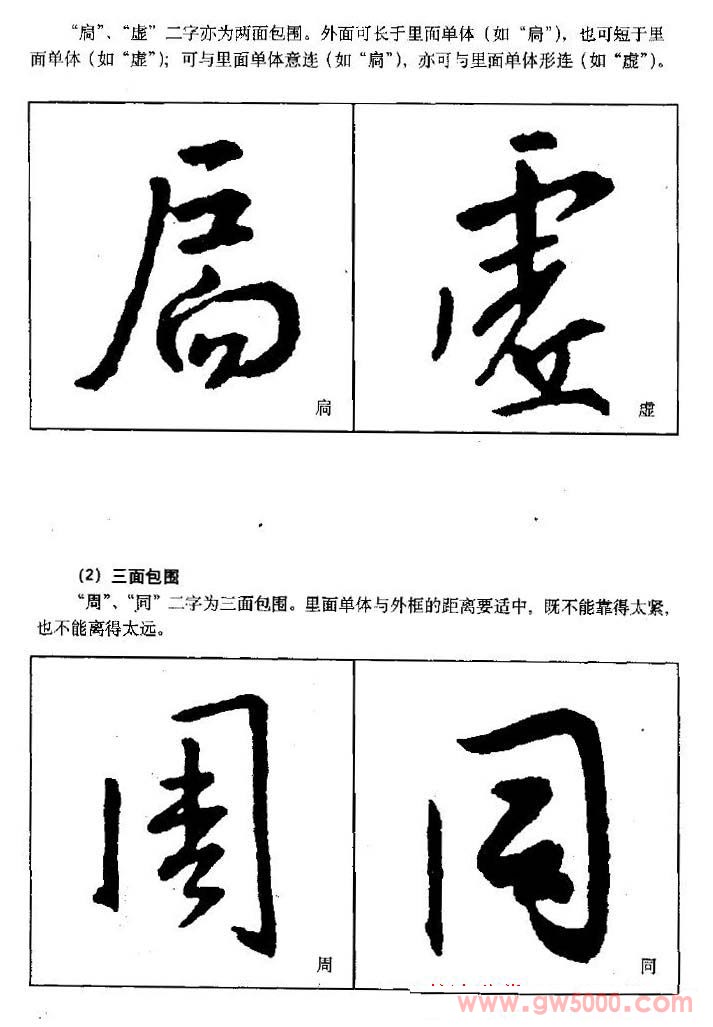 “扃”、“虚”二字亦为两面包围。外面可长于里面单体（如“扃”），也可短于里
面单体（如“虚”）；可与里面单体意连（如“扃”），亦可与里面单体形连（如“虚”）。
扃 虚
扃
虚
（2）三面包围
“周”、“同”二字为三面包围。里面单体与外框的距离要适中，既不能靠得太紧，
也不能离得太远。
周 同
周
同
www.gw5000.com